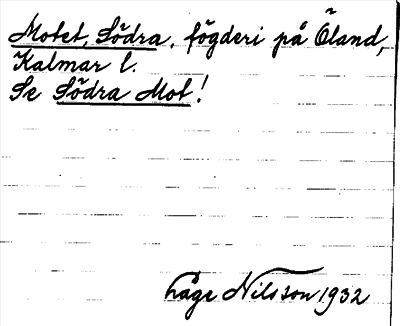 Motet, Södra, fögderi på Öland,
Kalmar l.
Se Södra Mot!
Låge Nilsson 1932